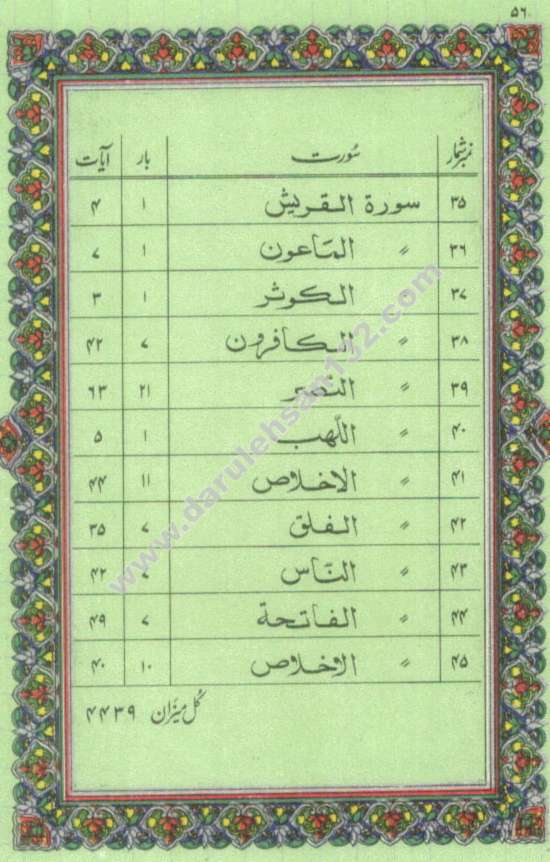 ۵۶
نمبر شمار سُورت بار آیات
۳۵ سورة القريش ۱ ۴
۳۶ 〃 الماعون ۱ ۷
۳۷ 〃 الكوثر ۱ ۳
۳۸ 〃 الكافرون ۷ ۴۲
۳۹ 〃 النصر ۲۱ ۶۳
۴۰ 〃 اللّهب ۱ ۵
۴۱ 〃 الاخلاص ۱۱ ۴۴
۴۲ 〃 الفلق ۷ ۳۵
۴۳ 〃 النّاس ۷ ۴۲
۴۴ 〃 الفاتحة ۷ ۴۹
۴۵ 〃 الاخلاص ۱۰ ۴۰
کُل میزان ۴۴۳۹
www.darulehsan132.com